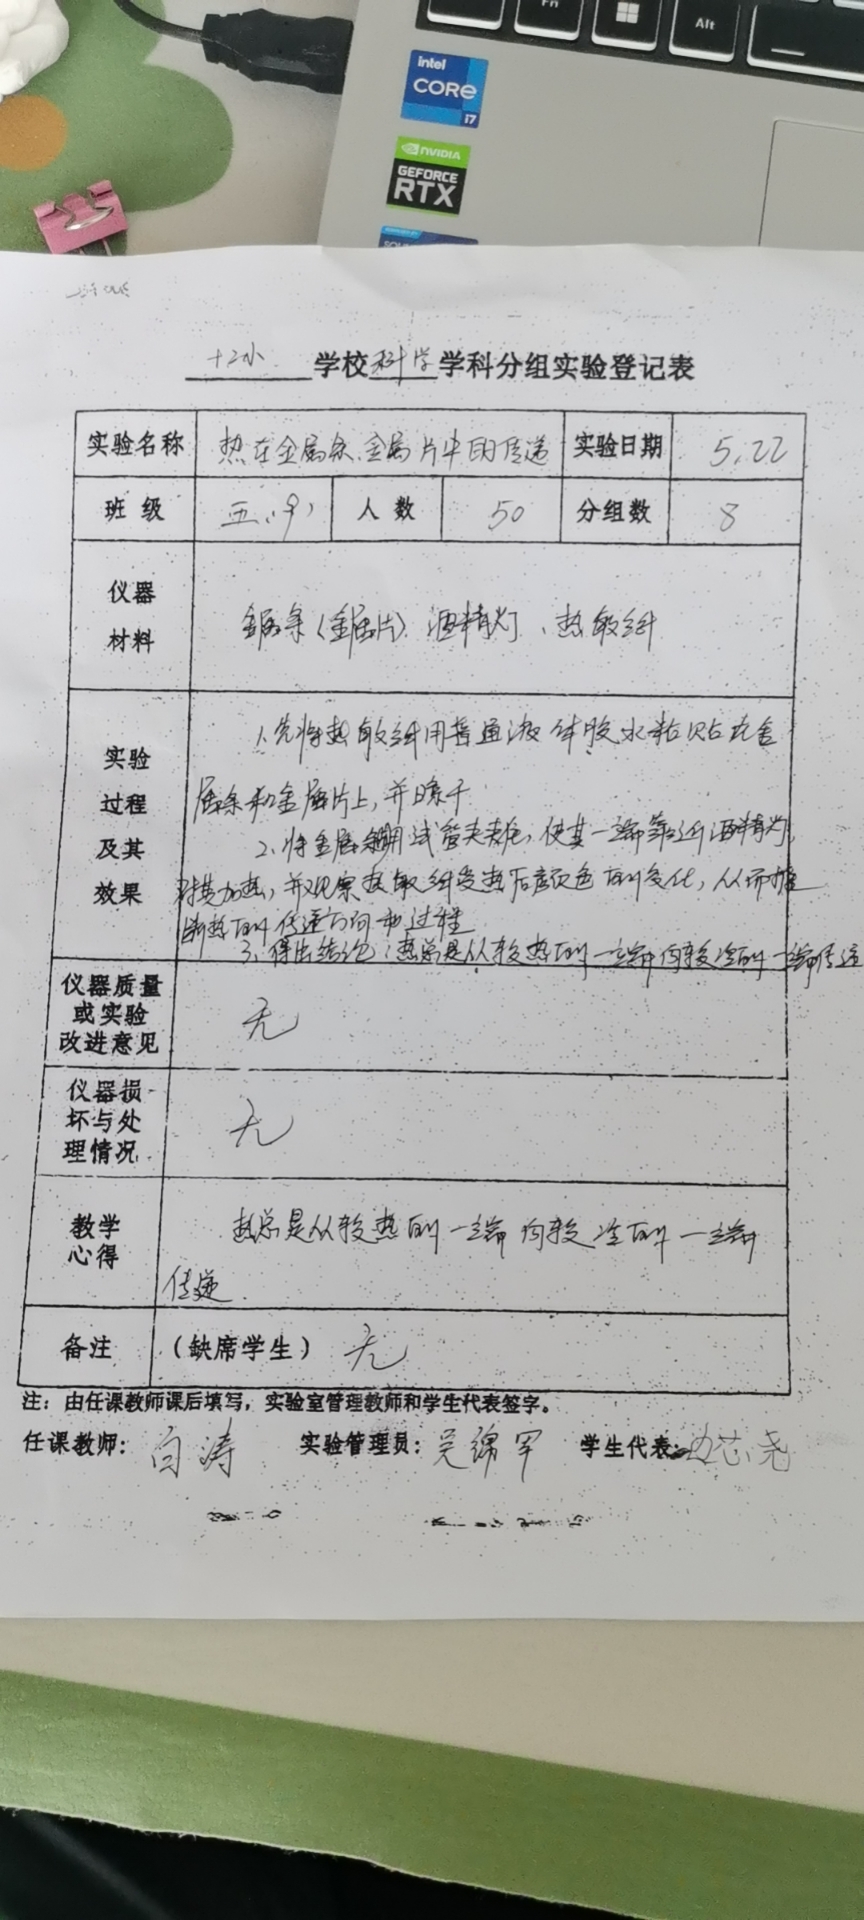 Fn
Alt
intel
CORE
i7
NVIDIA
GEFORCE
RTX
十二小学校科学学科分组实验登记表
实验名称 热在金属条、金属片中的传递 实验日期 5.22
班级 五(9) 人数 50 分组数 8
仪器材料 金属条(金属片)、酒精灯、热敏纸
实验过程及其效果
1、先将热敏纸用普通液体胶水粘贴在金
属条和金属片上,并晾干
2、将金属条用试管夹夹住,使其一端靠近酒精灯,
对其加热,并观察热敏纸受热后颜色的变化,从而推
断热的传递方向和过程
3、得出结论:热总是从较热的一端向较冷的一端传递
仪器质量或实验改进意见 无
仪器损坏与处理情况 无
教学心得 热总是从较热的一端向较冷的一端
传递
备注 (缺席学生) 无
注:由任课教师课后填写,实验室管理教师和学生代表签字。
任课教师: 白涛 实验管理员: 吴绵罕 学生代表: